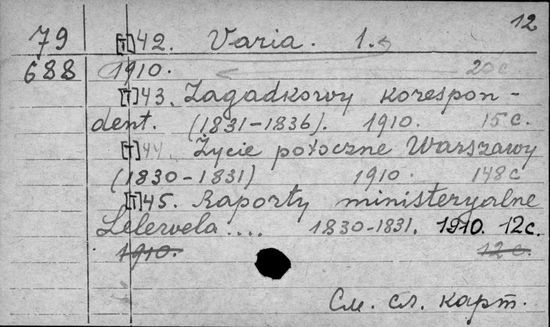 12
79 [т]42. Varia. 1.
688 1910. 20 с.
[т]43. Zagadkowy korespon-
dent. (1831-1836). 1910. 15 с.
[т]44. Życie potoczne Warszawy
(1830-1831) 1910. 148 с
[т]45. Raporty ministeryalne
Lelewela.... 1830-1831. 1910. 12 с.
1910. 12 с.
См. сл. карт.